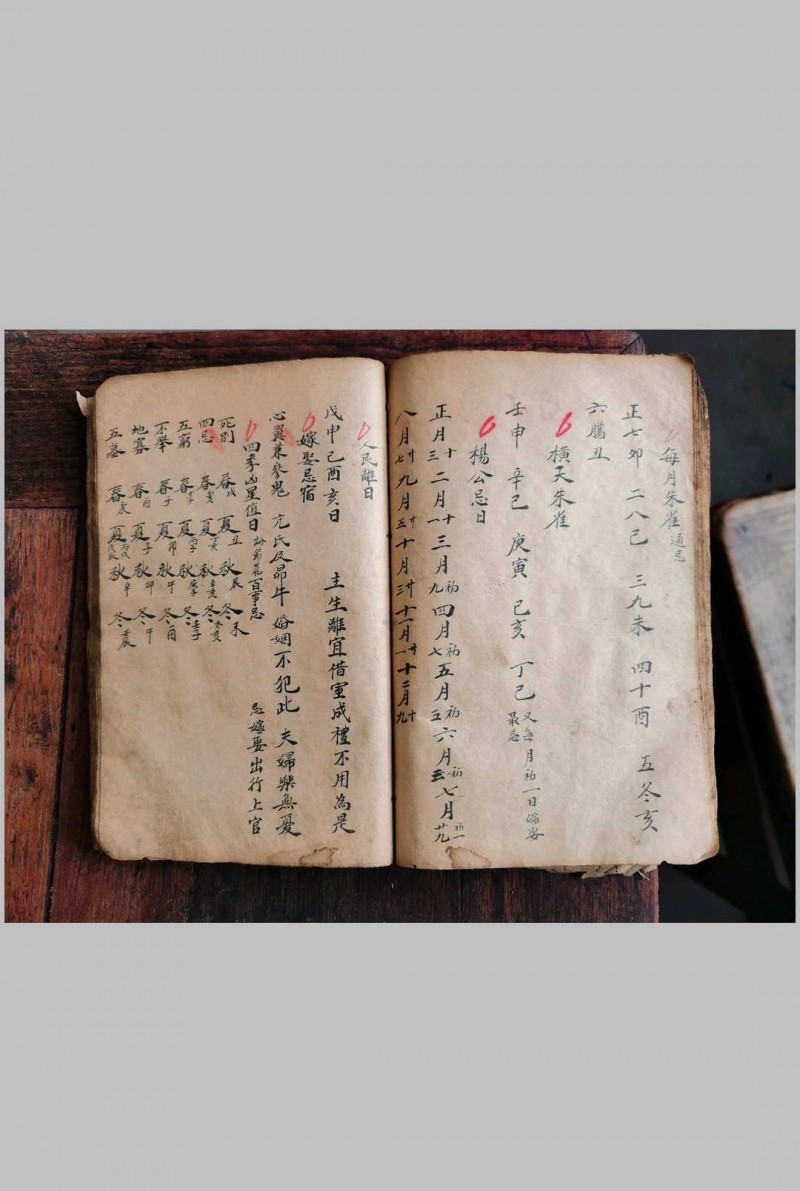 每月朱雀通忌
正七卯 二八巳 三九未 四十酉 五冬亥
六臘丑
橫天朱雀
壬申 辛巳 庚寅 己亥 丁巳 又每月初一日嫁娶最忌
楊公忌日
正月十三 二月十一 三月初九 四月初七 五月初五 六月初三 七月初一廿九
八月廿七 九月廿五 十月廿三 十一月廿一 十二月十九
人民離日
戊申己酉亥日 主生離宜借室成禮不用為是
嫁娶忌宿
心翼兼參鬼 亢氐及昴牛 婚姻不犯此 夫婦樂無憂
四季凶星值日 百事忌 忌嫁娶出行上官
死別 春戌 夏丑 秋辰 冬未
四忌 春 夏 秋辛亥 冬癸亥
五窮 春 夏 秋 冬壬子
不舉 春子 夏卯 秋午 冬酉
地寡 春酉 夏子 秋卯 冬午
五墓 春 夏 秋 冬